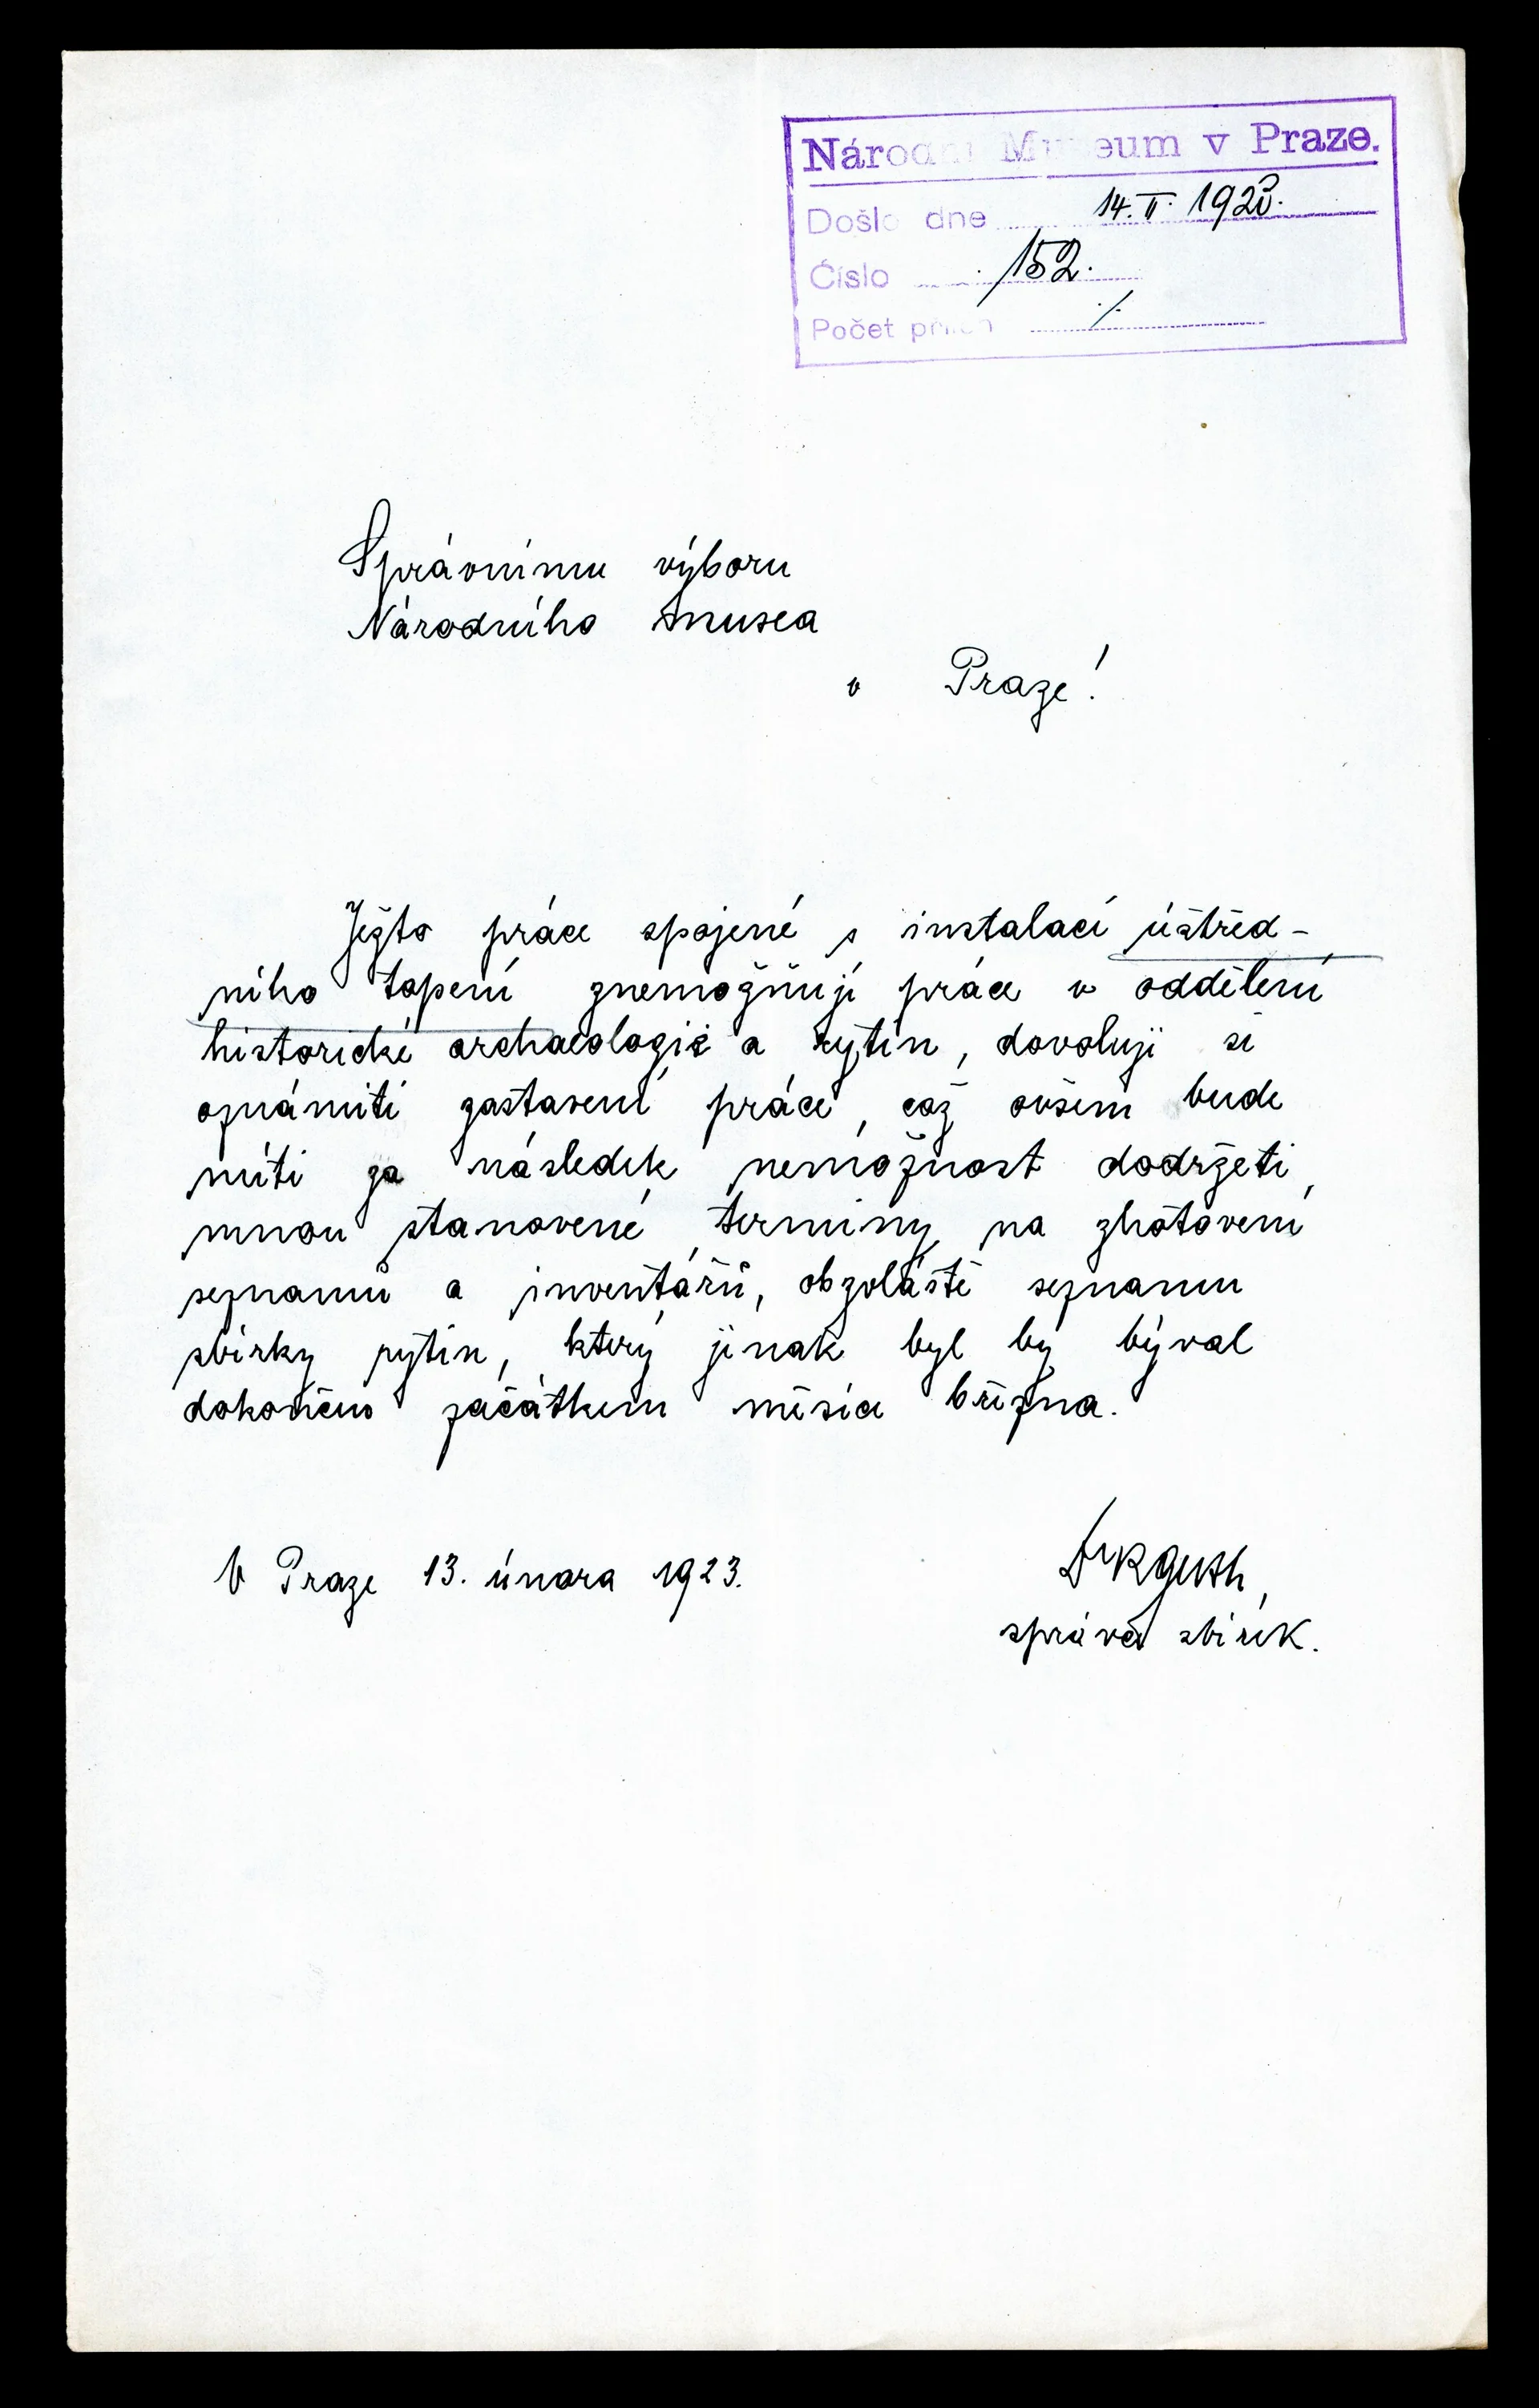 Národní Museum v Praze.
Došlo dne 14. II. 1923.
Číslo 152.
Počet příloh ·/·
Správnímu výboru
Národního musea
v Praze!
Ježto práce spojené s instalací ústřed-
ního topení znemožňují práce v oddělení
historické archaeologie a rytin, dovoluji si
oznámiti zastavení práce, což ovšem bude
míti za následek nemožnost dodržeti
mnou stanovené terminy na zhotovení
seznamů a inventářů, obzvláště seznamu
sbírky rytin, který jinak byl by býval
dokončen začátkem měsíce března.
V Praze 13. února 1923.
Dr K Guth,
správa sbírek.